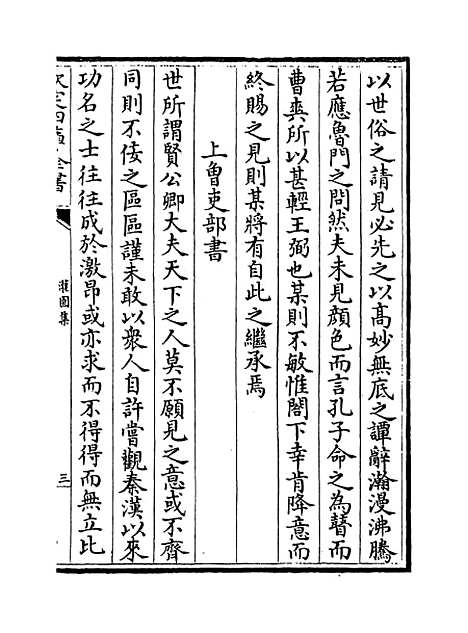 以世俗之請見必先之以髙妙無底之譚辭瀚漫沸騰
若應魯門之問然夫未見顔色而言孔子命之為瞽而
曹爽所以甚輕王弼也某則不敏惟閤下幸肯降意而
終賜之見則某將有自此之繼承焉
上魯吏部書
世所謂賢公卿大夫天下之人莫不願見之意或不齊
同則不佞之區區謹未敢以衆人自許嘗觀秦漢以來
功名之士往往成於激昂或亦求而不得得而無立比
欽定四庫全書
灌園集
三